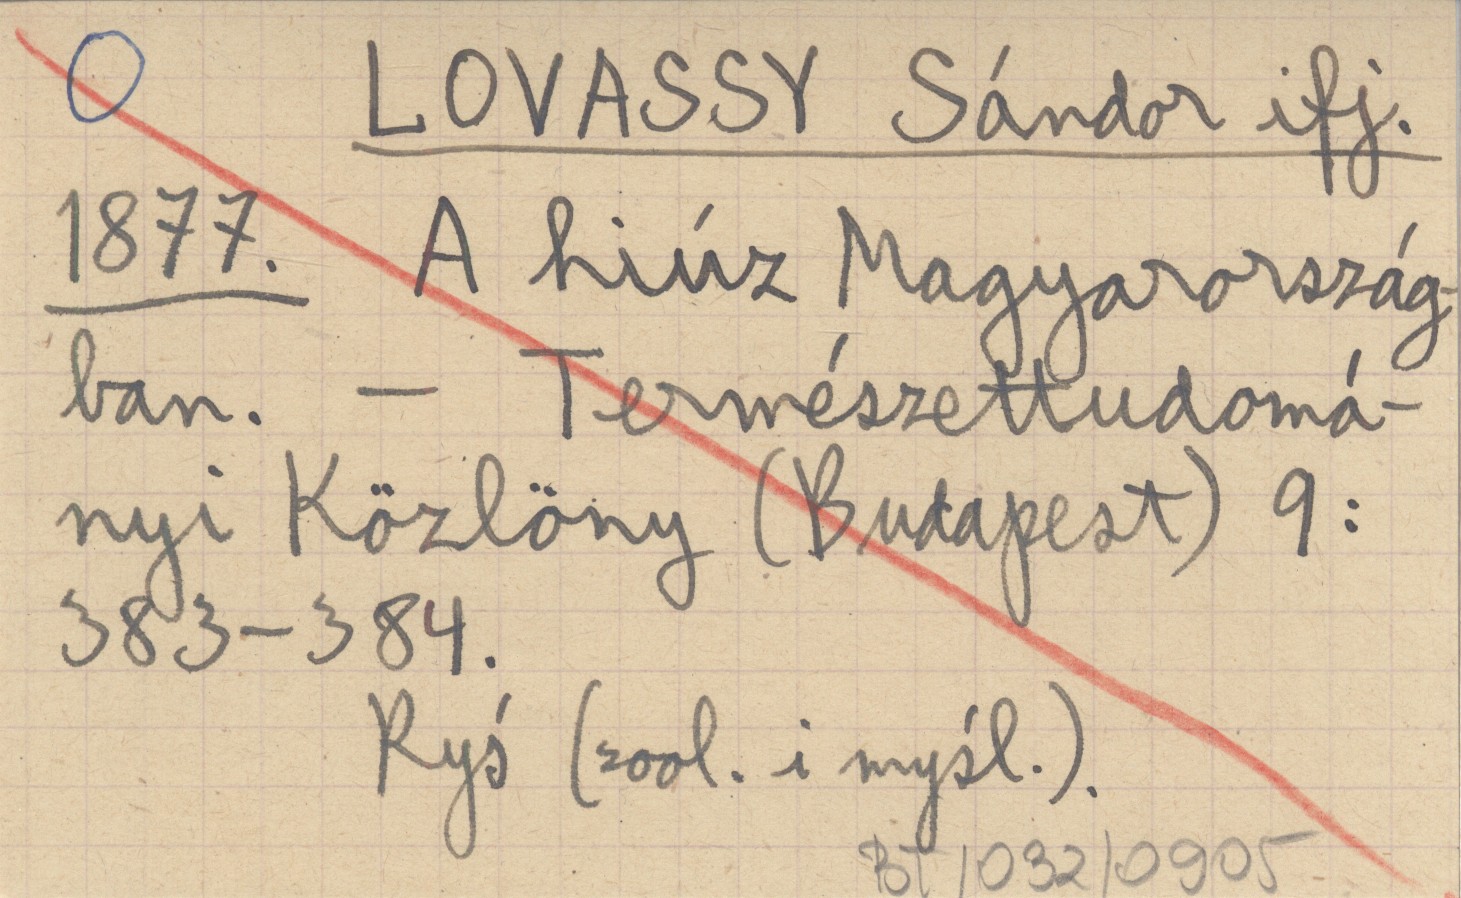 LOVASSY Sándor ifj.
1877. A hiúz Magyarország-
ban. — Természettudomá-
nyi Közlöny (Budapest) 9:
383-384.
Ryś (zool. i myśl.).
BT/032/0905